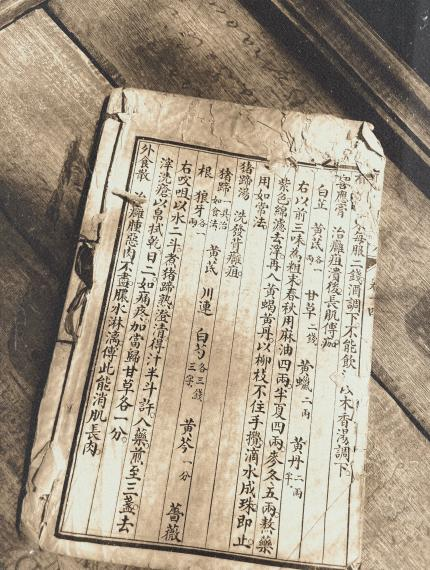 每服二錢酒調下不能飲以木香湯調下
膏 治癰疽潰後長肌傅
白芷 黃芪各一兩 甘草二錢 黃蠟二兩 黃丹二兩半
右以前三味為粗末春秋用麻油四兩半夏四兩冬五兩熬藥
紫色綿濾去滓再入黃蠟黃丹以柳枝不住手攪滴水成珠即止
用如常法
猪蹄湯 洗發背癰疽
猪蹄一具治如食法 黃芪 川連 白芍各三錢三字 黃芩一分 薔薇
根 狼牙各一兩
右㕮咀以水二斗煮猪蹄熟澄清得汁半斗許入藥煎至三盞去
滓洗瘡以帛拭乾日二如痛疼加當歸甘草各一分
外食散 治癰腫惡肉不盡膿水淋漓傅此能消肌長肉